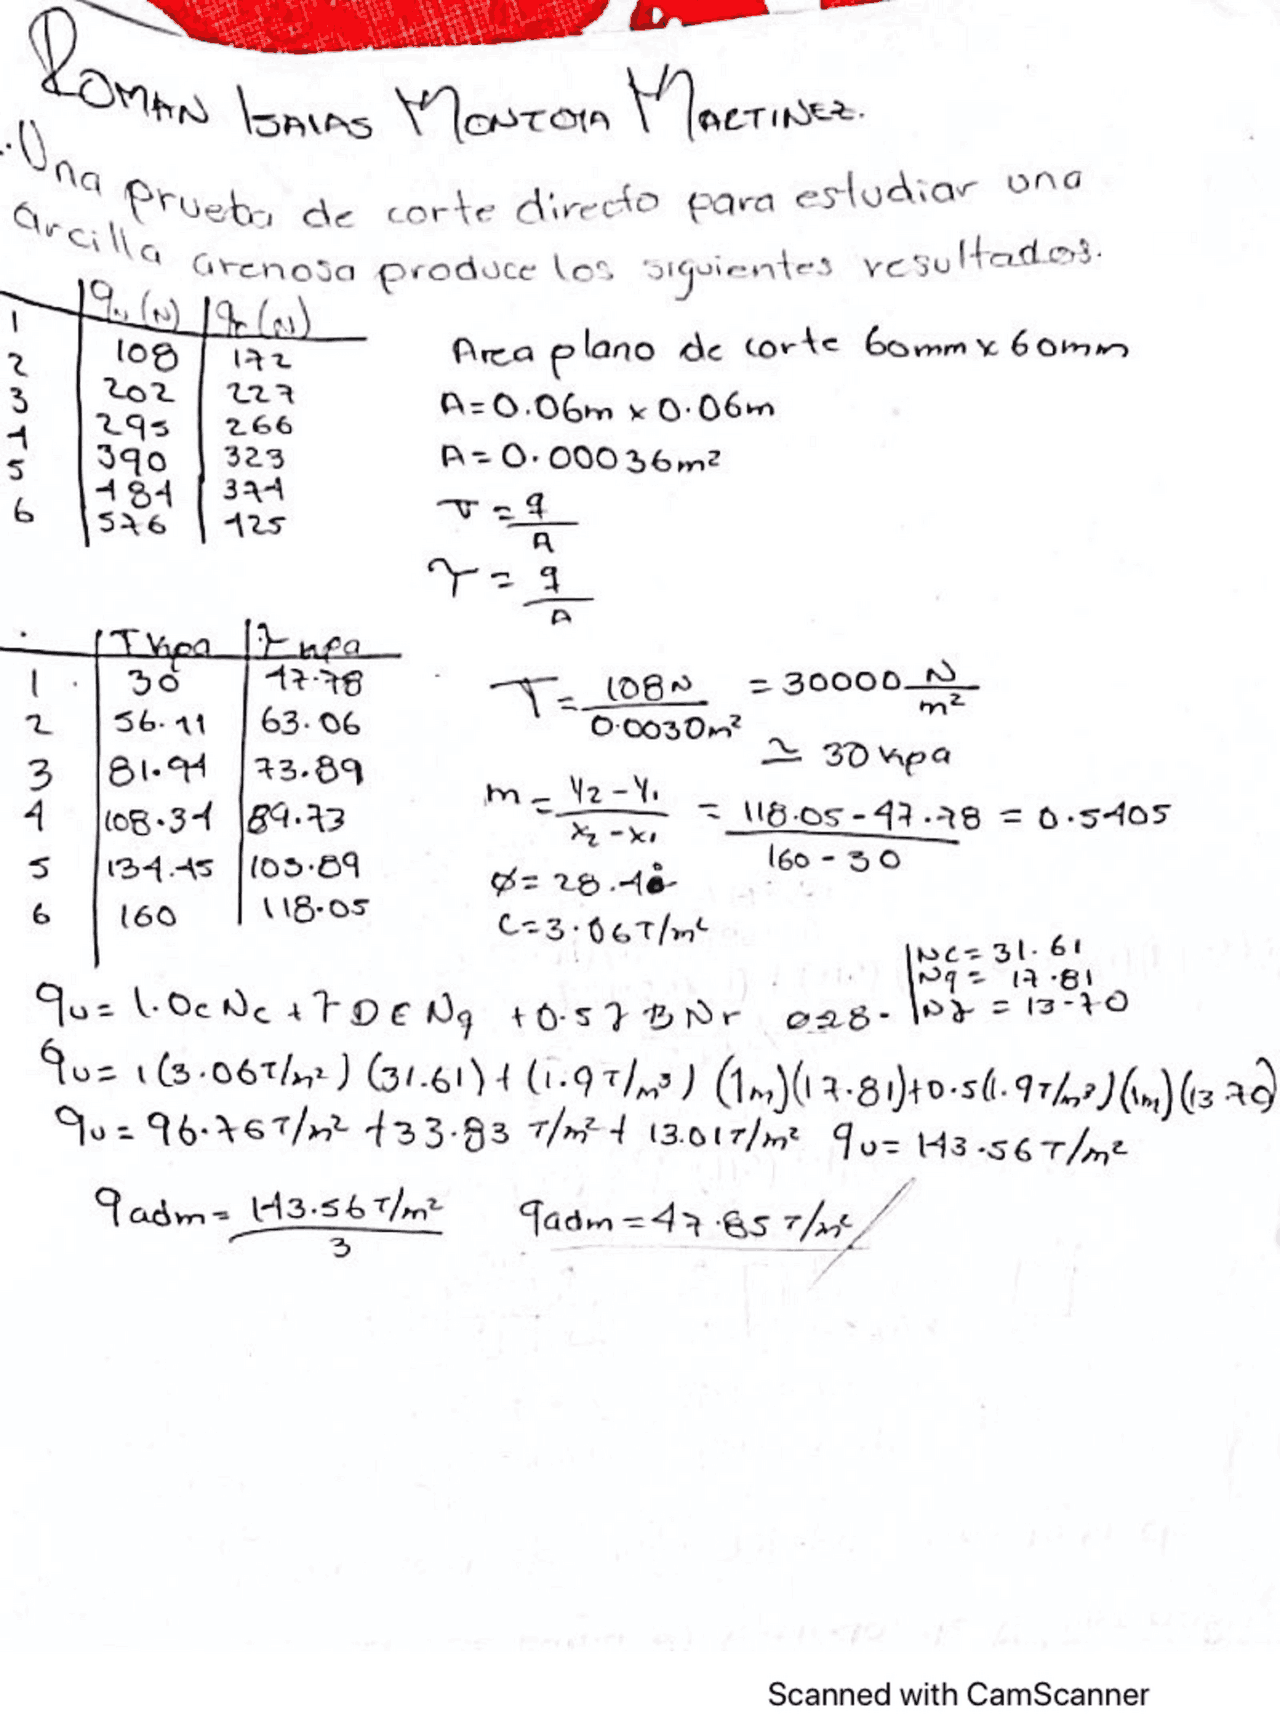 ROMAN ISAIAS MONTOIA MARTINEZ.
Una prueba de corte directo para estudiar una
arcilla arenosa produce los siguientes resultados.
qu (N) qr (N)
1 108 172
2 202 227
3 295 266
4 390 323
5 484 374
6 576 425
Area plano de corte 60mm x 60mm
A = 0.06m x 0.06m
A = 0.00036m²
σ = q/A
τ = q/A
T kpa τ kpa
1 30 47.78
2 56.11 63.06
3 81.94 73.89
4 108.34 89.73
5 134.45 103.89
6 160 118.05
T = 108N/0.0030m² = 30000 N/m²
≃ 30 kpa
m = Y2 - Y1/X2 - X1 = 118.05 - 47.78/160 - 30 = 0.5405
Ø = 28.4°
C = 3.06 T/m²
Nc = 31.61
Nq = 17.81
Nγ = 13.70
qu = 1.0c Nc + γ D E Nq + 0.5 γ B Nr
qu = 1 (3.06T/m²) (31.61) + (1.9 T/m³) (1m) (17.81) + 0.5 (1.9 T/m³) (1m) (13.70)
qu = 96.76 T/m² + 33.83 T/m² + 13.01 T/m² qu = 143.56 T/m²
qadm = 143.56 T/m²/3 qadm = 47.85 T/m²
Scanned with CamScanner